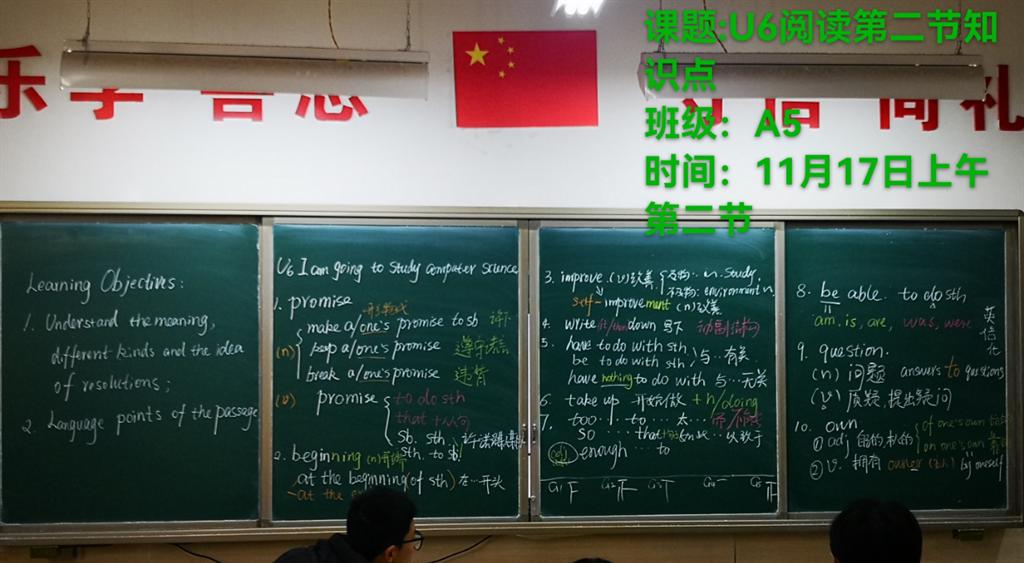 乐 学 善 思
课题:U6阅读第二节知
识点
班级：A5
时间：11月17日上午
第二节
礼
Learning Objectives:
1. Understand the meaning,
different kinds and the idea
of resolutions;
2. Language points of the passage
U6 I am going to study computer science
1. promise
make a/one's promise to sb
(n) keep a/one's promise
break a/one's promise 违背
(v) promise
to do sth
that + 从句
sb. sth.
sth. to sb
2. beginning (n)开始
at the beginning (of sth) 在…开头
at the
3. improve (v)改善
study,
environment
self-improvement (n)改善
4. write it/them down 写下
5. have to do with sth.
be to do with sth. 与…有关
have nothing to do with 与…无关
6. take up 开始做 + n/doing
7. too … to … 太…而不能
so … that
(adj) enough … to
G1 G2 G3 G4 G5
8. be able to do sth
am, is, are, was, were
9. question.
(n) 问题 answers to questions
(v) 质疑, 提出疑问
10. own
① adj 自己的
of one's own
on one's own
② v. 拥有 owner by oneself